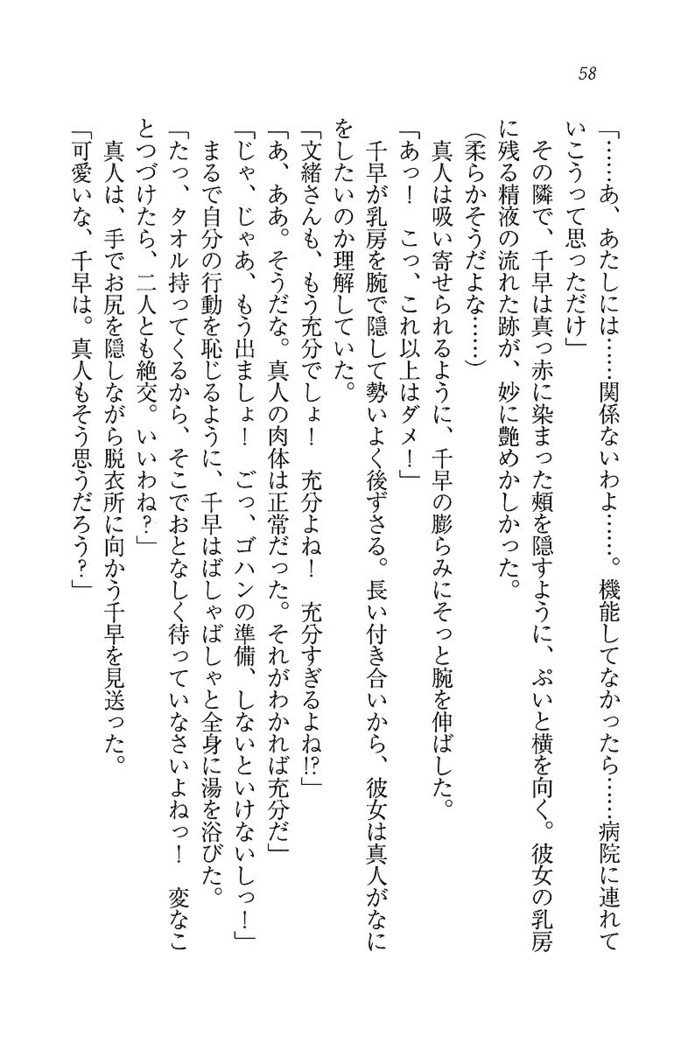 58
「……あ、あたしには……関係ないわよ……。機能してなかったら……病院に連れて
いこうって思っただけ」
その隣で、千早は真っ赤に染まった頰を隠すように、ぷいと横を向く。彼女の乳房
に残る精液の流れた跡が、妙に艶めかしかった。
(柔らかそうだよな……)
真人は吸い寄せられるように、千早の膨らみにそっと腕を伸ばした。
「あっ！　こっ、これ以上はダメ！」
千早が乳房を腕で隠して勢いよく後ずさる。長い付き合いから、彼女は真人がなに
をしたいのか理解していた。
「文緒さんも、もう充分でしょ！　充分よね！　充分すぎるよね!?」
「あ、ああ。そうだな。真人の肉体は正常だった。それがわかれば充分だ」
「じゃ、じゃあ、もう出ましょ！　ごっ、ゴハンの準備、しないといけないしっ！」
まるで自分の行動を恥じるように、千早はばしゃばしゃと全身に湯を浴びた。
「たっ、タオル持ってくるから、そこでおとなしく待っていなさいよねっ！　変なこ
とつづけたら、二人とも絶交。いいわね?」
真人は、手でお尻を隠しながら脱衣所に向かう千早を見送った。
「可愛いな、千早は。真人もそう思うだろう?」